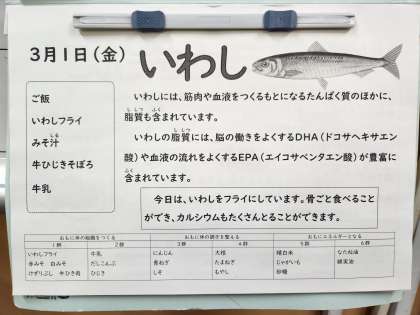 3月1日(金)
いわし
ご飯
いわしフライ
みそ汁
牛ひじきそぼろ
牛乳
いわしには、筋肉や血液をつくるもとになるたんぱく質のほかに、
脂質も含まれています。
いわしの脂質には、脳の働きをよくするDHA(ドコサヘキサエン
酸)や血液の流れをよくするEPA(エイコサペンタエン酸)が豊富に
含まれています。
今日は、いわしをフライにしています。骨ごと食べること
ができ、カルシウムもたくさんとることができます。
おもに体の組織をつくる おもに体の調子を整える おもにエネルギーとなる
1群 2群 3群 4群 5群 6群
いわしフライ 牛乳 にんじん 大根 精白米 なたね油
赤みそ 白みそ だしこんぶ 青ねぎ たまねぎ じゃがいも 綿実油
けずりぶし 牛ひき肉 ひじき しそ もやし 砂糖